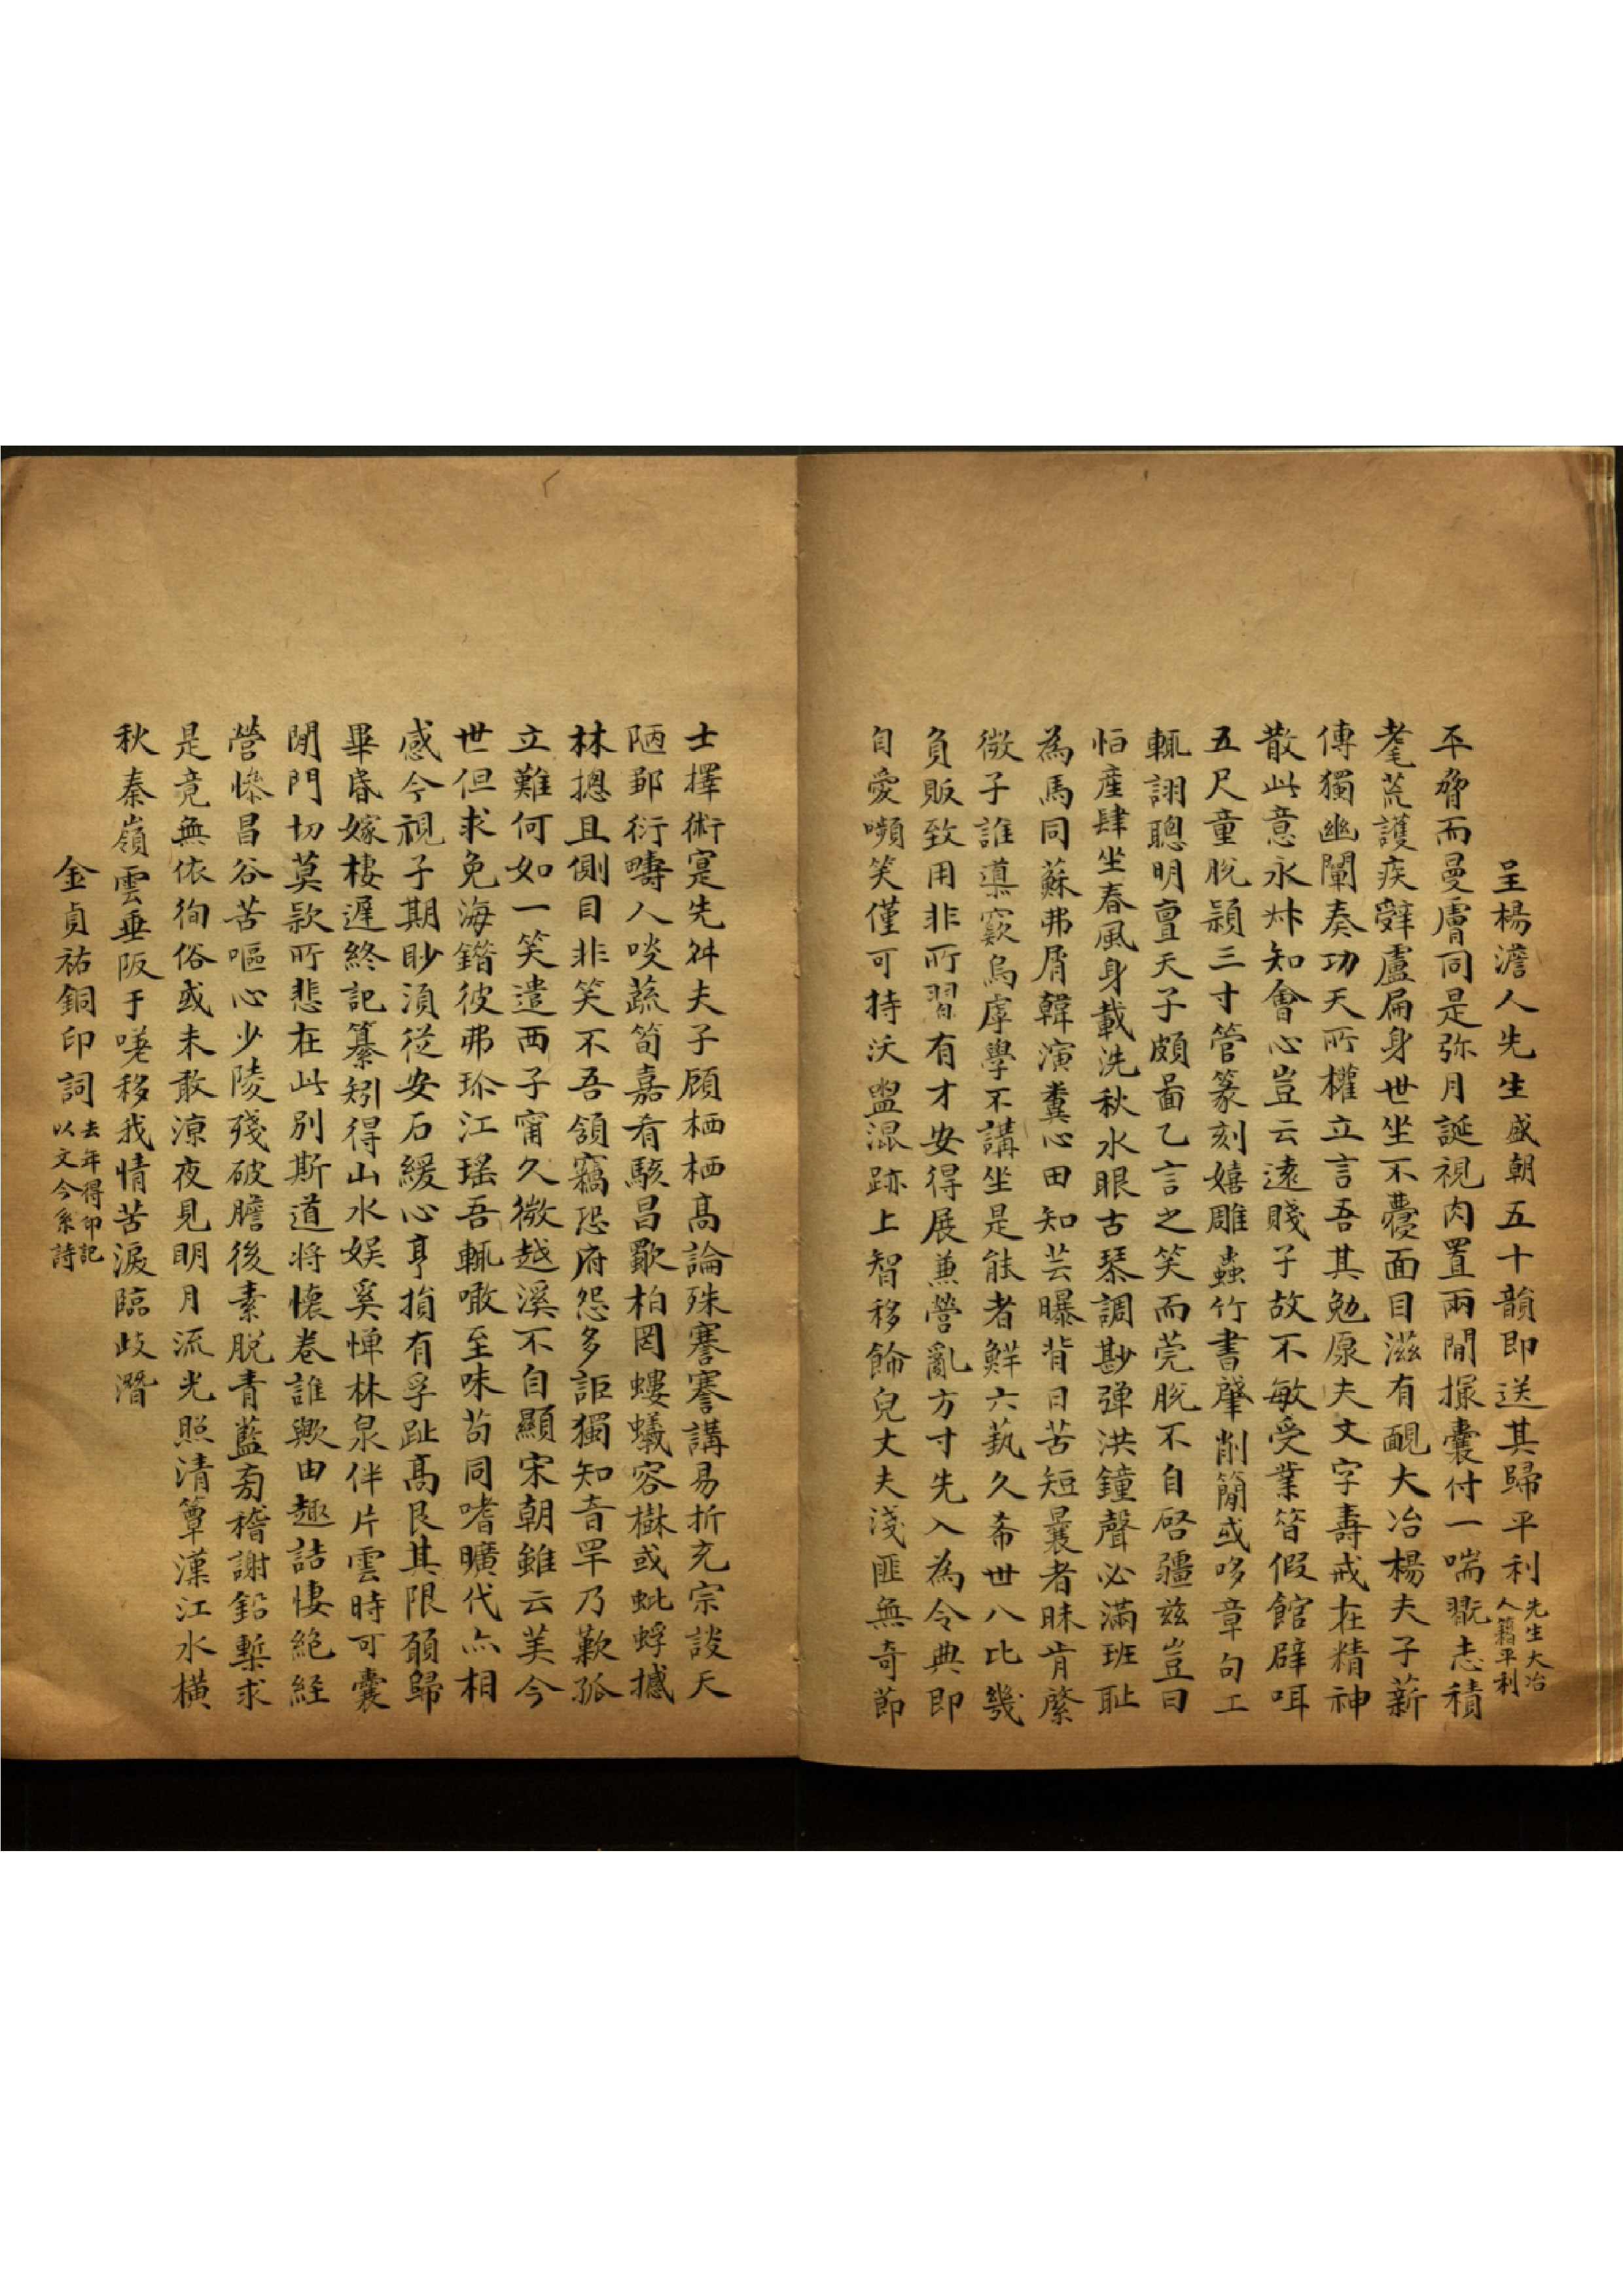 呈楊澹人先生盛朝五十韻即送其歸平利先生大冶人籍平利
平脅而曼膚同是弥月誕視肉置兩間撮囊付一喘翫志積
耄荒護疾辭盧扁身世坐不憂面目滋有靦大冶楊夫子薪
傳獨幽闡奏功天所權立言吾其勉原夫文字壽戒在精神
散此意永叔知會心豈云遠賤子故不敏受業答假館辟咡
五尺童脫穎三寸管篆刻嬉雕蟲竹書肇削簡或哆章句工
輒詡聰明亶天子頗啚乙言之笑而莞脫不自啓疆茲豈曰
怕產肆坐春風身載洗秋水眼古琴調尠弹洪鐘聲必滿班耻
為馬同蘇弗屑韓演糞心田知芸曝背日苦短曩者昧肯綮
微子誰導窾烏虖學不講坐是能者鮮六萟久希世八比幾
負販致用非所習有才安得展蕙營亂方寸先入為令典即
自愛嚬笑僅可持沃盥混跡上智移餙兒丈夫淺匪無奇節
士擇術寔先舛夫子顧栖栖高論殊謇謇講易折充宗談天
陋鄒衍疇人啖蔬筍嘉肴駭昌歜柏罔螻蟻容樹或蚍蜉撼
林摠且側目非笑不吾領竊恐府怨多詎獨知音罕乃歎孤
立難何如一笑遣西子甯久微越溪不自顯宋朝雖云美今
世但求免海鍇彼弗珍江瑤吾輒噉至味苟同嗜曠代亦相
感今視子期眇須從安石緩心亨損有孚趾高艮其限願歸
畢昏嫁棲遲終記纂矧得山水娱奚憚林泉伴片雲時可囊
閉門切莫款所悲在此別斯道将懷卷誰歟由趣詰悽絕經
營慘昌谷苦嘔心少陵殘破膽後素脫青藍芻稽謝鉛槧求
是竟無依徇俗或未敢涼夜見明月流光照清簟漢江水橫
秋秦嶺雲垂阪于嘆移我情苦淚臨歧潛
金貞祐銅印詞去年得印記以文今系詩